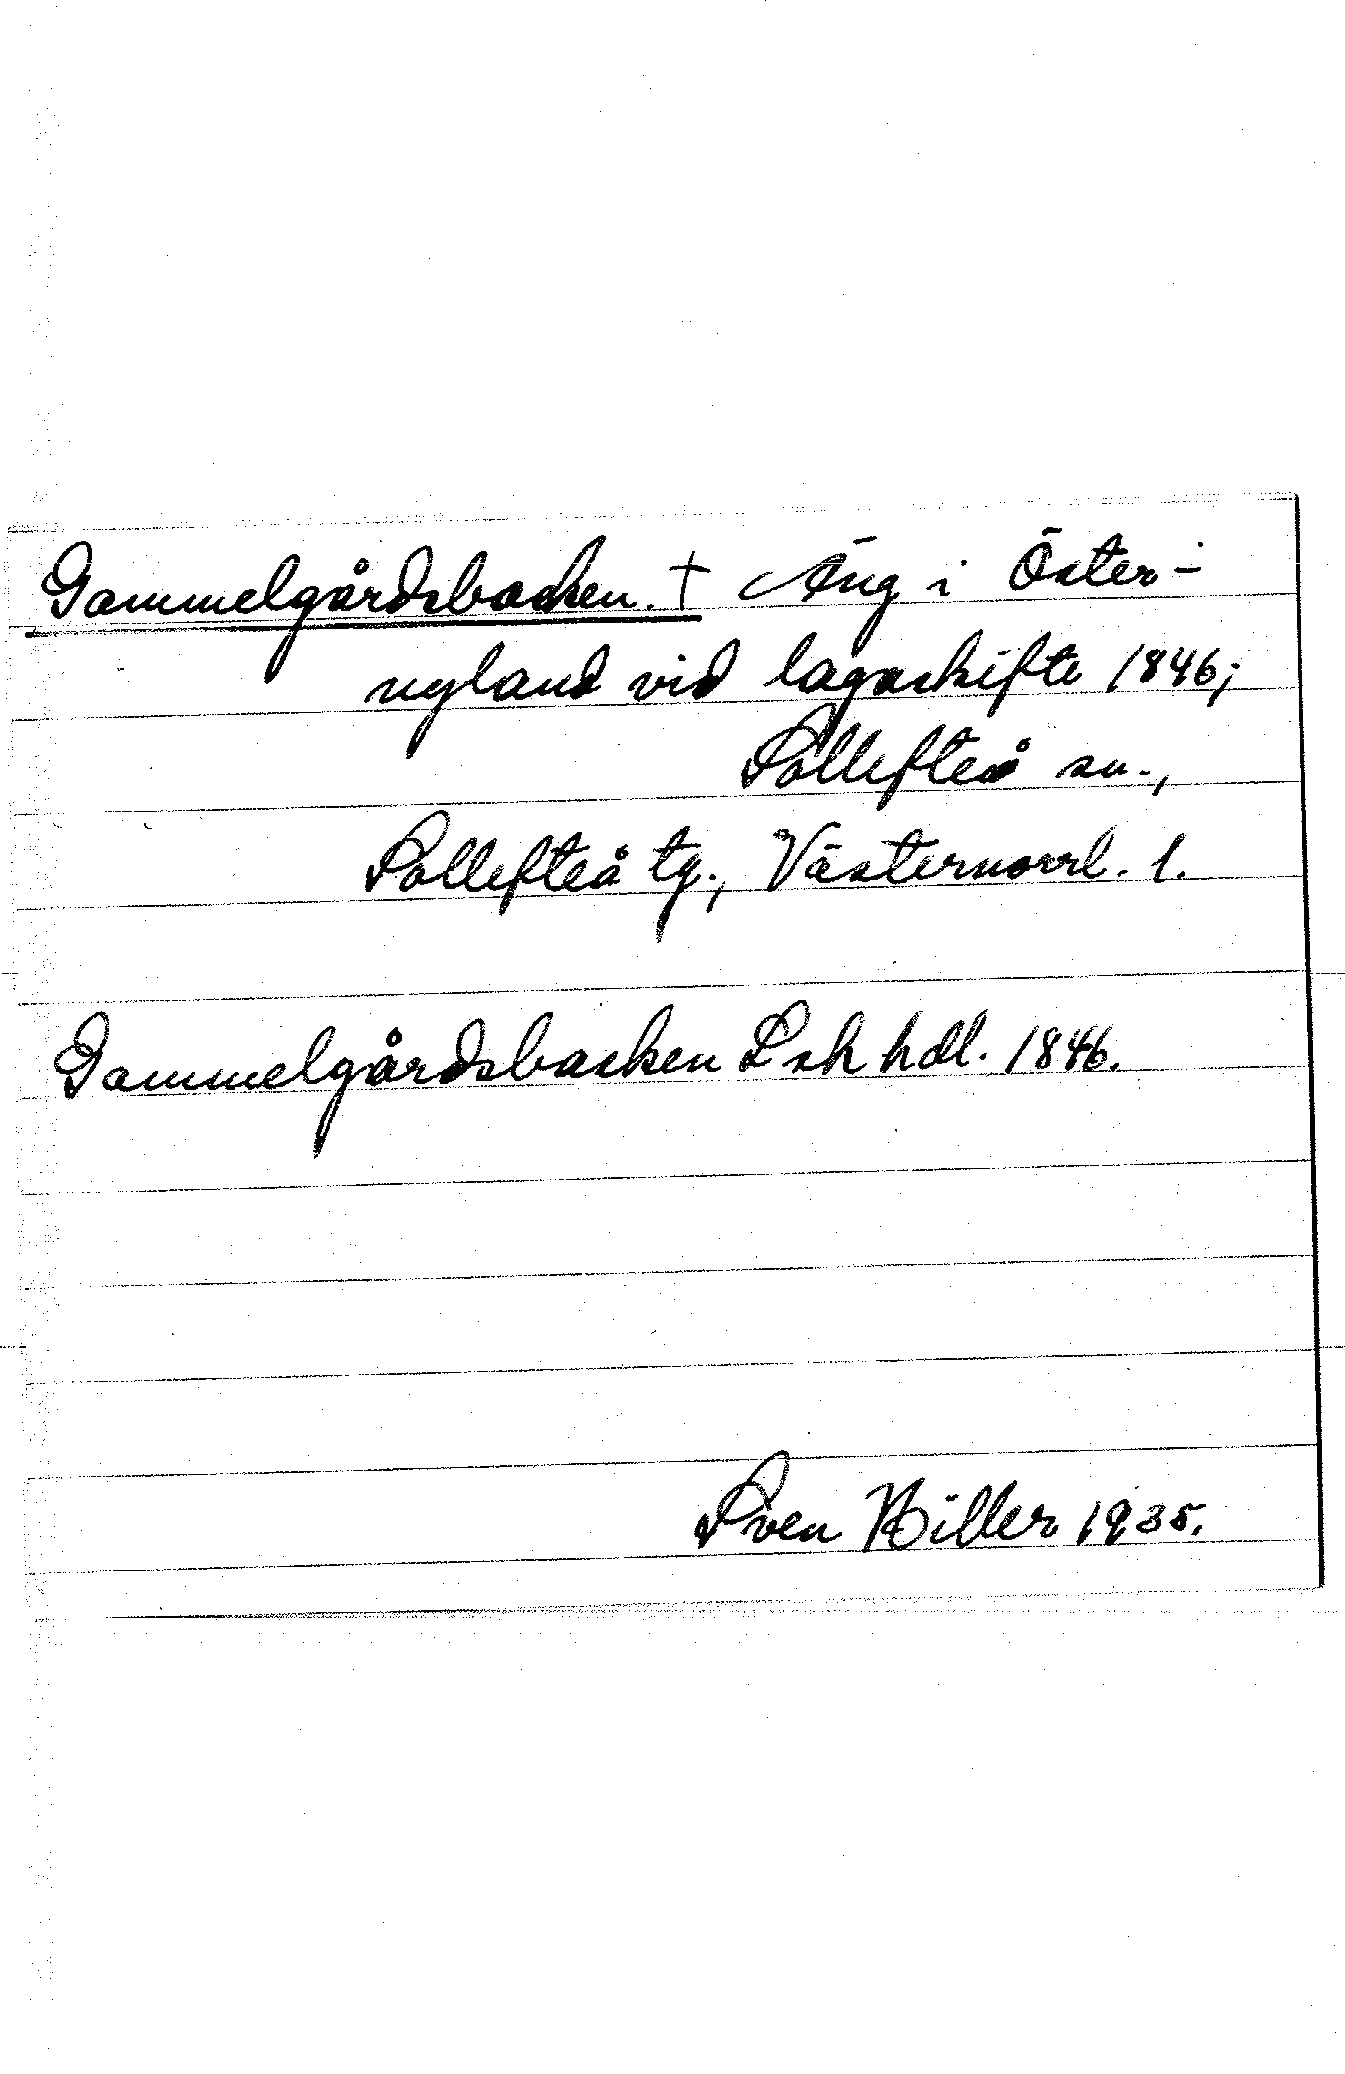 Gammelgårdsbacken. † Äng i Öster-
nyland vid lagaskifte 1846;
Sollefteå sn.,
Sollefteå tg., Västernorrl. l.
Gammelgårdsbacken Lsk hdl. 1846.
Sven Hiller 1935.